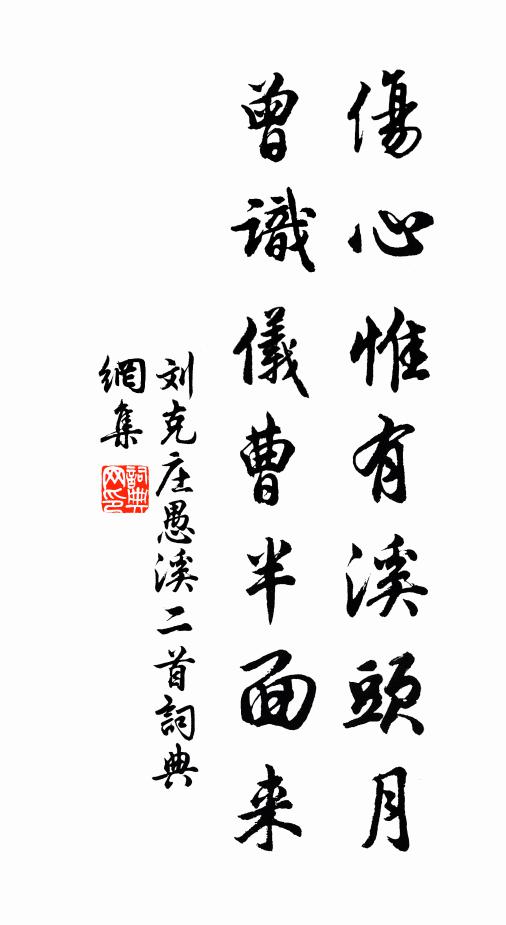 傷心惟有溪頭月
曾識儀曹半面来
刘克庄愚溪二首詞典
網集
詞典网印